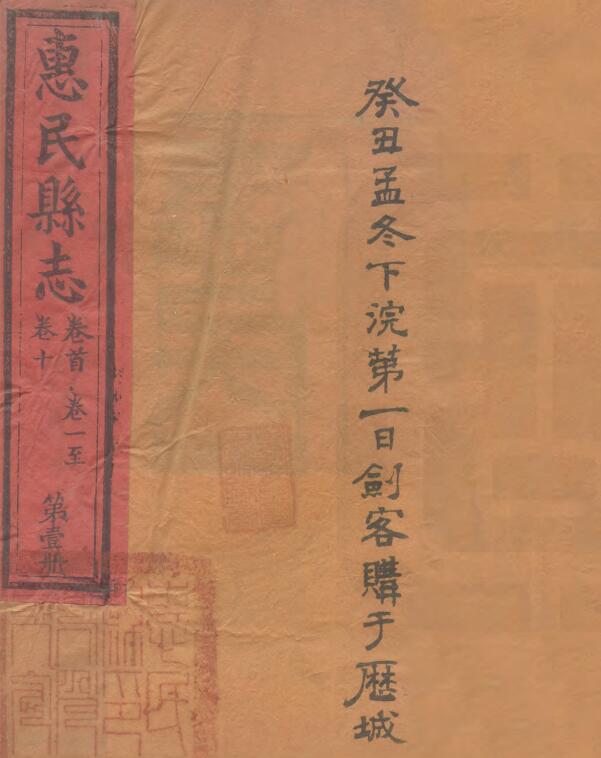 癸丑孟冬下浣第一日劍客購于歷城
惠民縣志
卷首·卷一至
卷十
第壹册